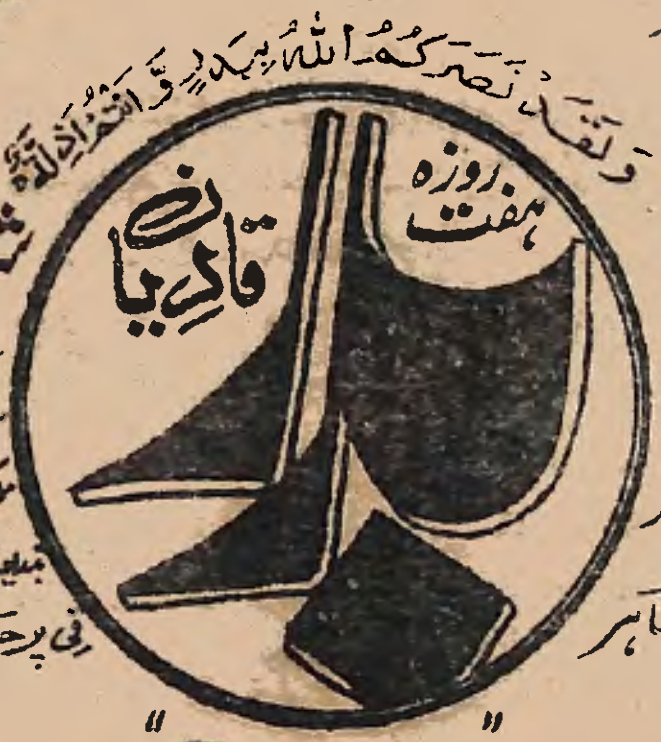 وَلَقَدْ نَصَرَكُمُ اللّٰهُ بِبَدْرٍ وَّاَنْتُمْ اَذِلَّةٌ
ہفت روزہ
بدر
قادیان
فی پرچہ